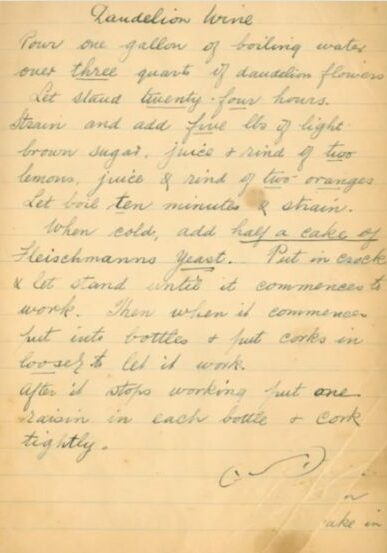 Dandelion Wine
Pour one gallon of boiling water
over three quarts of dandelion flowers
Let stand twenty-four hours.
Strain and add five lbs of light
brown sugar, juice & rind of two
lemons, juice & rind of two oranges
Let boil ten minutes & strain.
When cold, add half a cake of
Fleischmanns Yeast. Put in crock
& let stand until it commences to
work. Then when it commences
put into bottles & put corks in
loosely to let it work.
After it stops working put one
raisin in each bottle & cork
tightly.
ake in